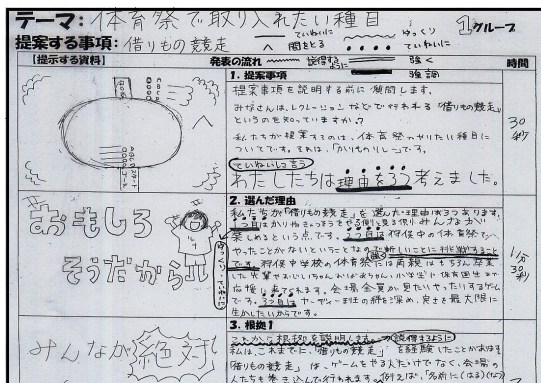 テーマ：体育祭で取り入れたい種目
1グループ
提案する事項：借りもの競走
ていねいに
ゆっくり
間をとる
ていねいに
【提示する資料】
発表の流れ
説得するように
強く
強調
時間
1. 提案事項
提案事項を説明する前に質問します。
みなさんは、レクレーションなどで行われる「借りもの競走」
というのを知っていますか？
私たちが提案するのは、体育祭のやりたい種目に
ついてです。それは、「かりものリレー」です。
ていねいに言う
わたしたちは理由を3つ考えました。
30秒
スタート
ゴール
おもしろ
そうだから!!
2. 選んだ理由
私たちが「借りもの競走」を選んだ理由は3つあります。
1つ目はかりね
みんなが
楽しめるという点です。2つ目は狩俣中の体育祭で
やったことがないということなので新しいことに挑戦すること
です。狩俣中学校の体育祭には両親はもちろん卒業
した先輩やおじいちゃんおばあちゃん、小学生や保育園生まで
応援に来てくれます。会場全員が見たいやったりするゲーム
です。3つ目は
の絆を深め、良さを最大限に
生かしたいからです。
1分30秒
みんなが絶対
3. 根拠1
これから根拠を説明します。
説得するように
私は、これまでに、「借りもの競走」を経験したことがあります
「借りもの競走」は、ゲームをやる人だけでなく、会場の
人たちも巻き込んで行われます。例えば、「名前に（はる）（な）